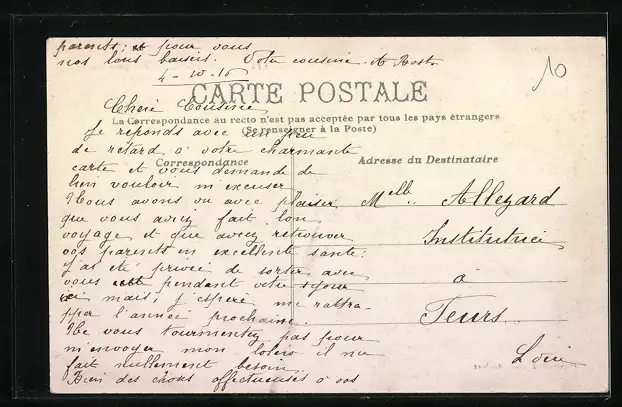 parents, et pour vous
nos bons baisers. Votre cousine A
4-10-16
10
CARTE POSTALE
La Correspondance au recto n'est pas acceptée par tous les pays étrangers
(Se renseigner à la Poste)
Correspondance
Adresse du Destinataire
Chère Cousine
Je réponds avec un peu
de retard à votre charmante
carte et vous demande de
bien vouloir m'excuser
Nous avons vu avec plaisir
que vous aviez fait bon
voyage et que aviez retrouver
vos parents en excellente santé.
J'ai été privée de sortir avec
vous pendant votre séjour
ici mais, j'espère me rattra-
per l'année prochaine.
Ne vous tourmentez pas pour
m'envoyer mon il me
fait nullement besoin.
Bien des choses affectueuses à vos
Melle Allezard
Institutrice
à
Feurs
Loire